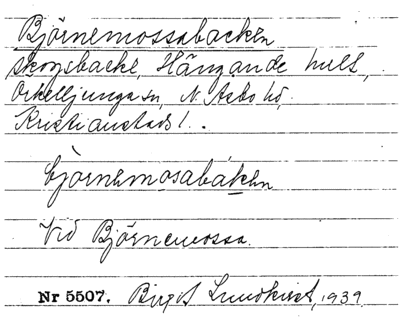 Björnemossabacken
skogsbacke, Hängande hult,
Örkelljunga sn, N. Åsbo hd,
Kristianstads l.
björnemosabáken
Vid Björnemossa.
Nr 5507. Birgit Lundkvist, 1939